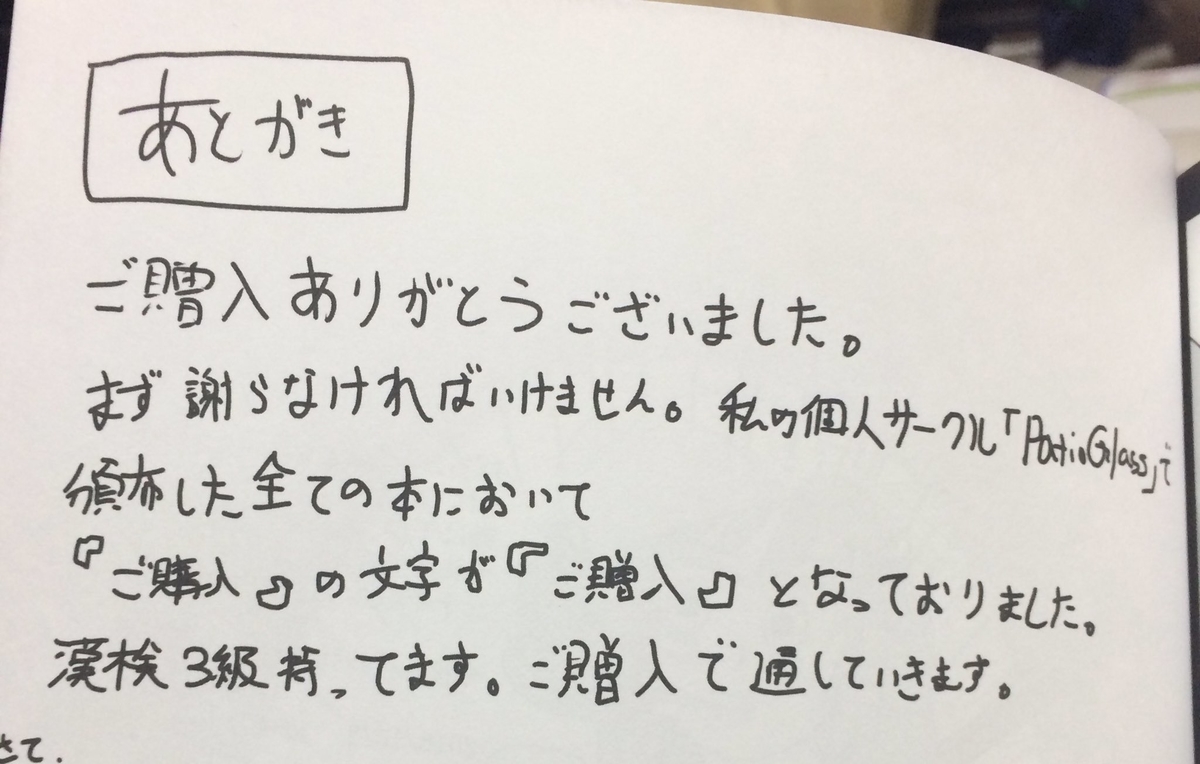 あとがき
ご贈入ありがとうございました。
まず謝らなければいけません。私の個人サークル「PatioGlass」で
頒布した全ての本において
『ご購入』の文字が『ご贈入』となっておりました。
漢検3級持ってます。ご贈入で通していきます。
さて.